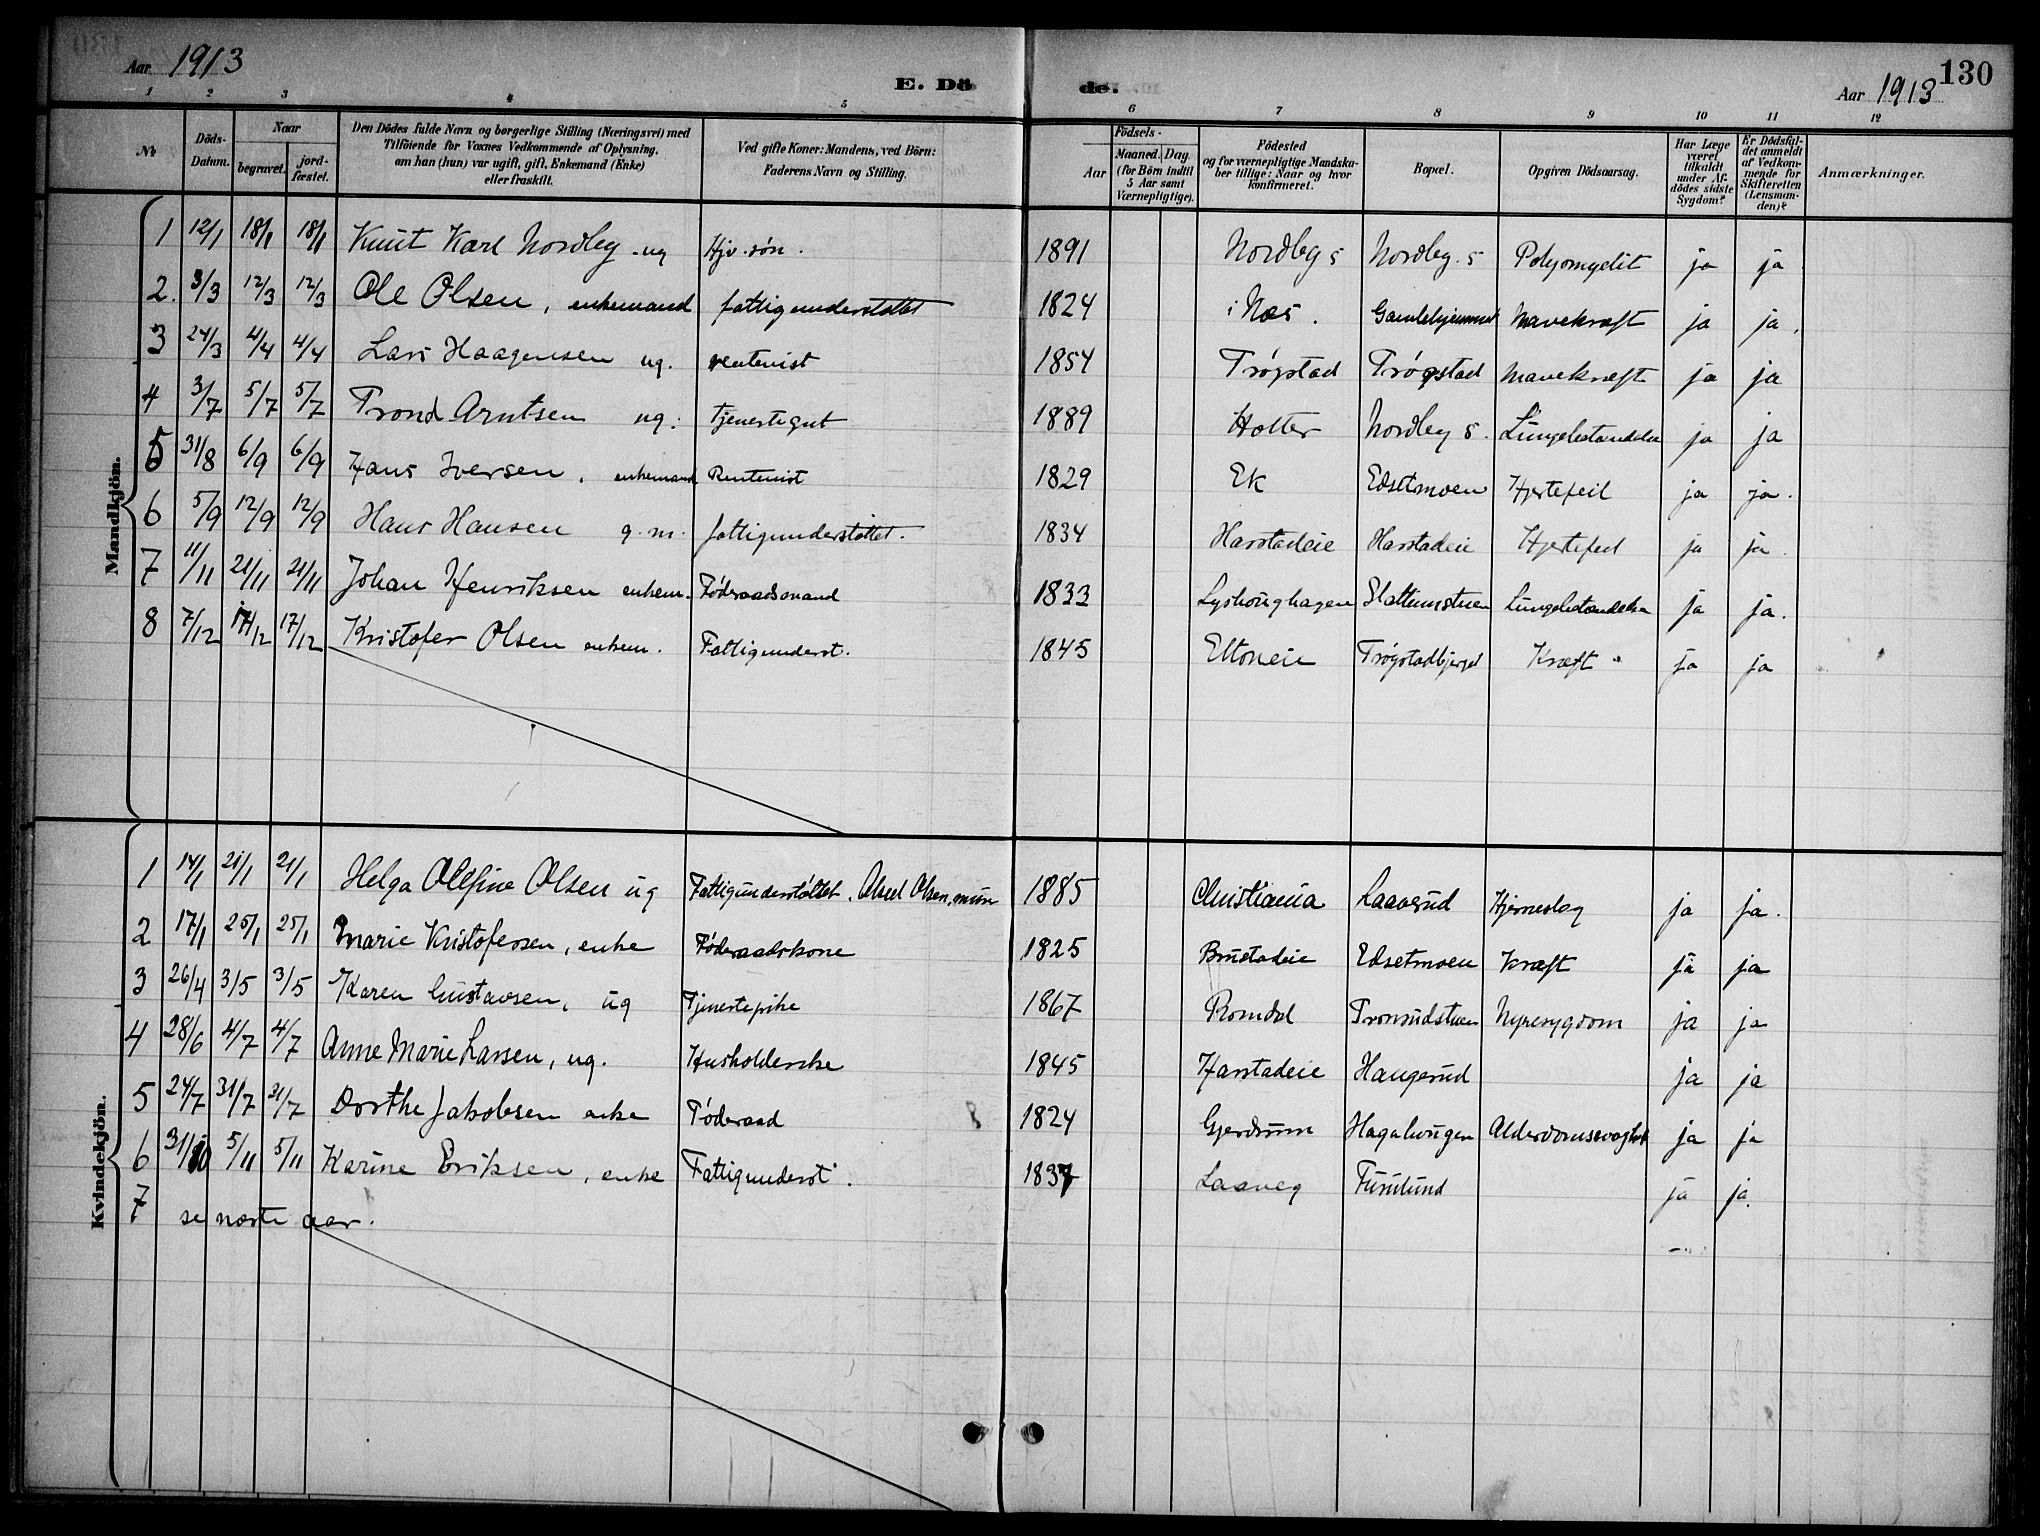 Aar 1913 E. Dö de. Aar 1913 130
1 2 3 4 5 6 7 8 9 10 11 12
No Döds-Datum. Naar begravet. jord-fæstet. Den Dödes fulde Navn og borgerlige Stilling (Næringsvei) med Tilföiende for Voxnes Vedkommende af Oplysning, om han (hun) var ugift, gift, Enkemand (Enke) eller fraskilt. Ved gifte Koner: Mandens, ved Börn: Faderens Navn og Stilling. Födsels- Aar Maaned. Dag. (for Börn indtil 5 Aar samt Værnepligtige). Födested og for værnepligtige Mandska-ber tillige: Naar og hvor konfirmeret. Bopæl. Opgiven Dödsaarsag. Har Læge været tilkaldt under Af-dödes sidste Sygdom? Er Dödsfal-det anmeldt af Vedkom-mende for Skifteretten (Lensman-den)? Anmærkninger.
Mandkjön.
1 12/1 18/1 18/1 Knut Karl Nordby ug Hjv. søn. 1891 Nordby s Nordby s Polyomyelit ja ja
2. 3/3 12/3 12/3 Ole Olsen, enkemand fattigunderstøttet 1824 i Næs. Gamlehjemmet Mavekræft ja ja.
3 24/3 4/4 4/4 Lars Haagensen ug. rentenist 1854 Trøgstad Trøgstad Mavekræft ja ja
4 3/7 5/7 5/7 Trond Arntsen ug. Tjenestegut 1889 Holter Nordby s. Lungebetændelse ja ja
5 31/8 6/9 6/9 Hans Iversen, enkemand Rentenist 1829 Ek Edsetmoen Hjertefeil ja ja.
6 5/9 12/9 12/9 Hans Hansen g.m. fattigunderstøttet. 1834 Harstadeie Harstadeie Hjertefeil ja ja.
7 11/11 21/11 21/11 Johan Henriksen enkem. Føderaadsmand 1833 Lyshoughagen Slattumstuen Lungebetændelse ja ja.
8 7/12 17/12 17/12 Kristofer Olsen enkem. Fattigunderst. 1845 Eltoneie Trøgstadbjerget Kræft ja ja
Kvindekjön.
1 14/1 21/1 21/1 Helga Olefine Olsen ug Fattigunderstøttet. Olsen, 1885 Christiania Laaverud Hjerneslag ja ja.
2 17/1 25/1 25/1 Marie Kristofersen, enke Føderaadskone 1825 Brustadeie Edsetmoen Kræft ja ja
3 26/4 3/5 3/5 Karen Gustavsen, ug Tjenestepike 1867 Romdal Tronrudstuen Nyresygdom ja ja
4 28/6 4/7 4/7 Anne Marie Larsen, ug. Husholderske 1845 Harstadeie Haugerud ja ja
5 24/7 31/7 31/7 Dorthe Jakobsen enke Føderaad 1824 Gjerdrum Hagahaugen Alderdomssvaghet ja ja
6 31/10 5/11 5/11 Karine Eriksen, enke Fattigunderst. 1837 Laaveg Furulund ja ja.
7 se næste aar.